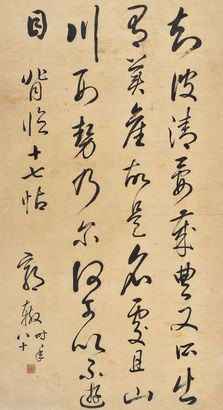 知彼清晏歲豐又所出
有異產故是名處且山
川形勢乃爾何可以不遊
目 背临十七帖
郭
时年
八十